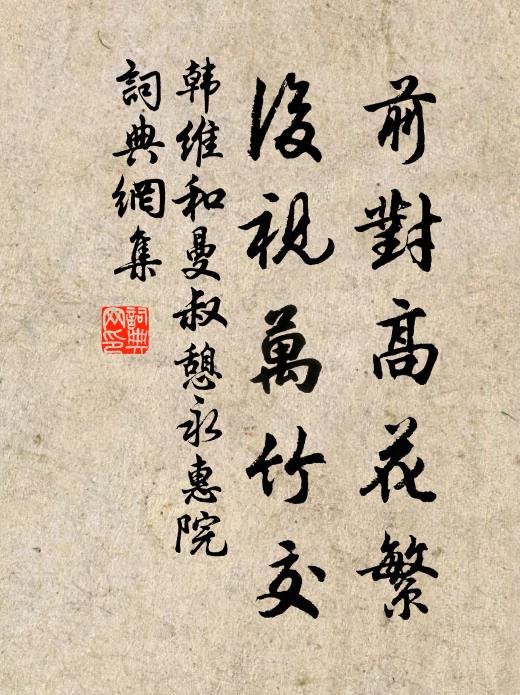 前對高花繁
後視萬竹交
韩维和曼叔憩永惠院
詞典網集
詞典网印